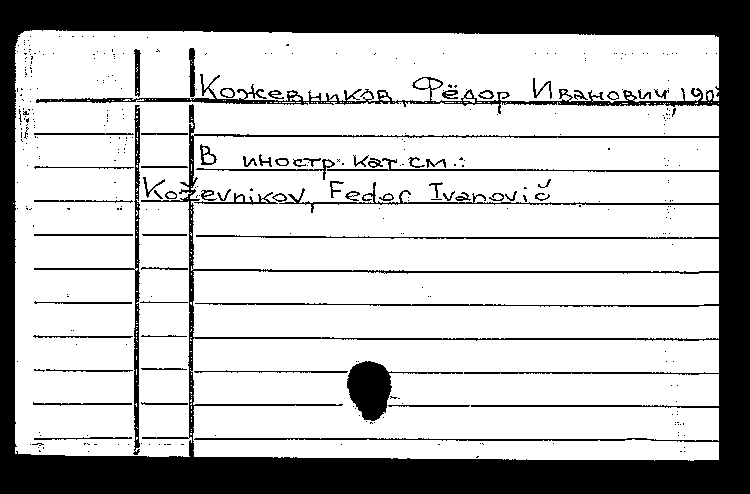 Кожевников, Фёдор Иванович,
В иностр. кат. см.:
Koževnikov, Fedor Ivanovič